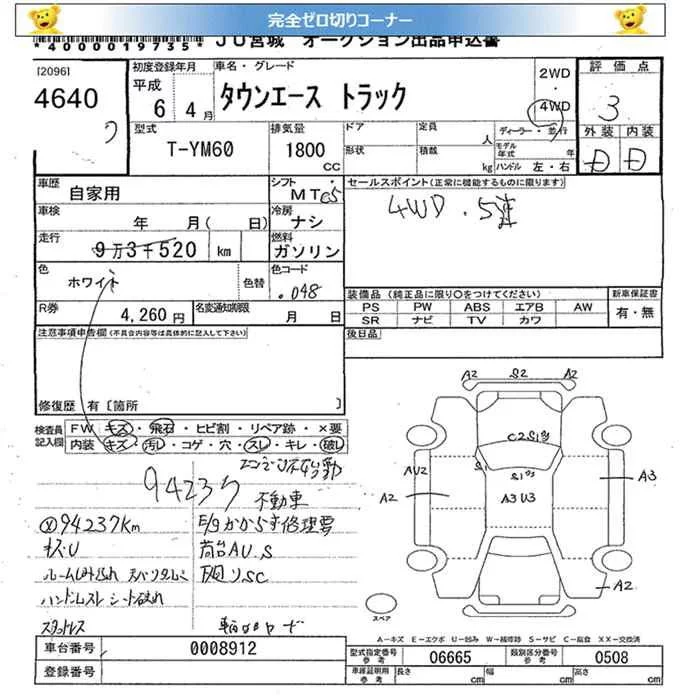 完全ゼロ切りコーナー
*4000019735* JU宮城 オークション出品申込書
[2096]
4640
初度登録年月
平成
6 4月
車名・グレード
タウンエース トラック
2WD
4WD
評価点
3
外装 内装
D D
型式
T-YM60
排気量
1800
CC
ドア
形状
定員
人
積載
kg
ディーラー・並行
モデル年式 年
ハンドル 左・右
車歴
自家用
シフト
MT C5
セールスポイント(正常に機能するものに限ります)
4WD . 5速
車検
年 月( 日)
冷房
ナシ
走行
9万3千520 km
燃料
ガソリン
色
ホワイト
色替
色コード
048
装備品 (純正品に限り○をつけてください)
PS PW ABS エアB AW
SR ナビ TV カワ
新車保証書
有・無
R券
4,260円
名変通知期限
月 日
後日品
注意事項申告欄(不具合内容等は具体的に記入して下さい)
修復歴 有〔箇所 〕
検査員記入欄
FW キズ・飛石・ヒビ割・リペア跡・×要
内装 キズ・汚れ・コゲ・穴・スレ・キレ・破レ
エンジン不始動
94237
不動車
94237Km
E/gかからず修理要
キズU
荷台AU.S
下廻りSC
シート破れ
スタッドレス
A2 S2 A2
C2S1
S1
S1
AU2
A2
A3U3
A3
A2
スペア
A-キズ E-エクボ U-凹み W-補修跡 S-サビ C-腐食 XX-交換済
車台番号
0008912
登録番号
型式指定番号 参考
06665
類別区分番号 参考
0508
車庫証明用 参考
長さ cm
幅 cm
高さ cm